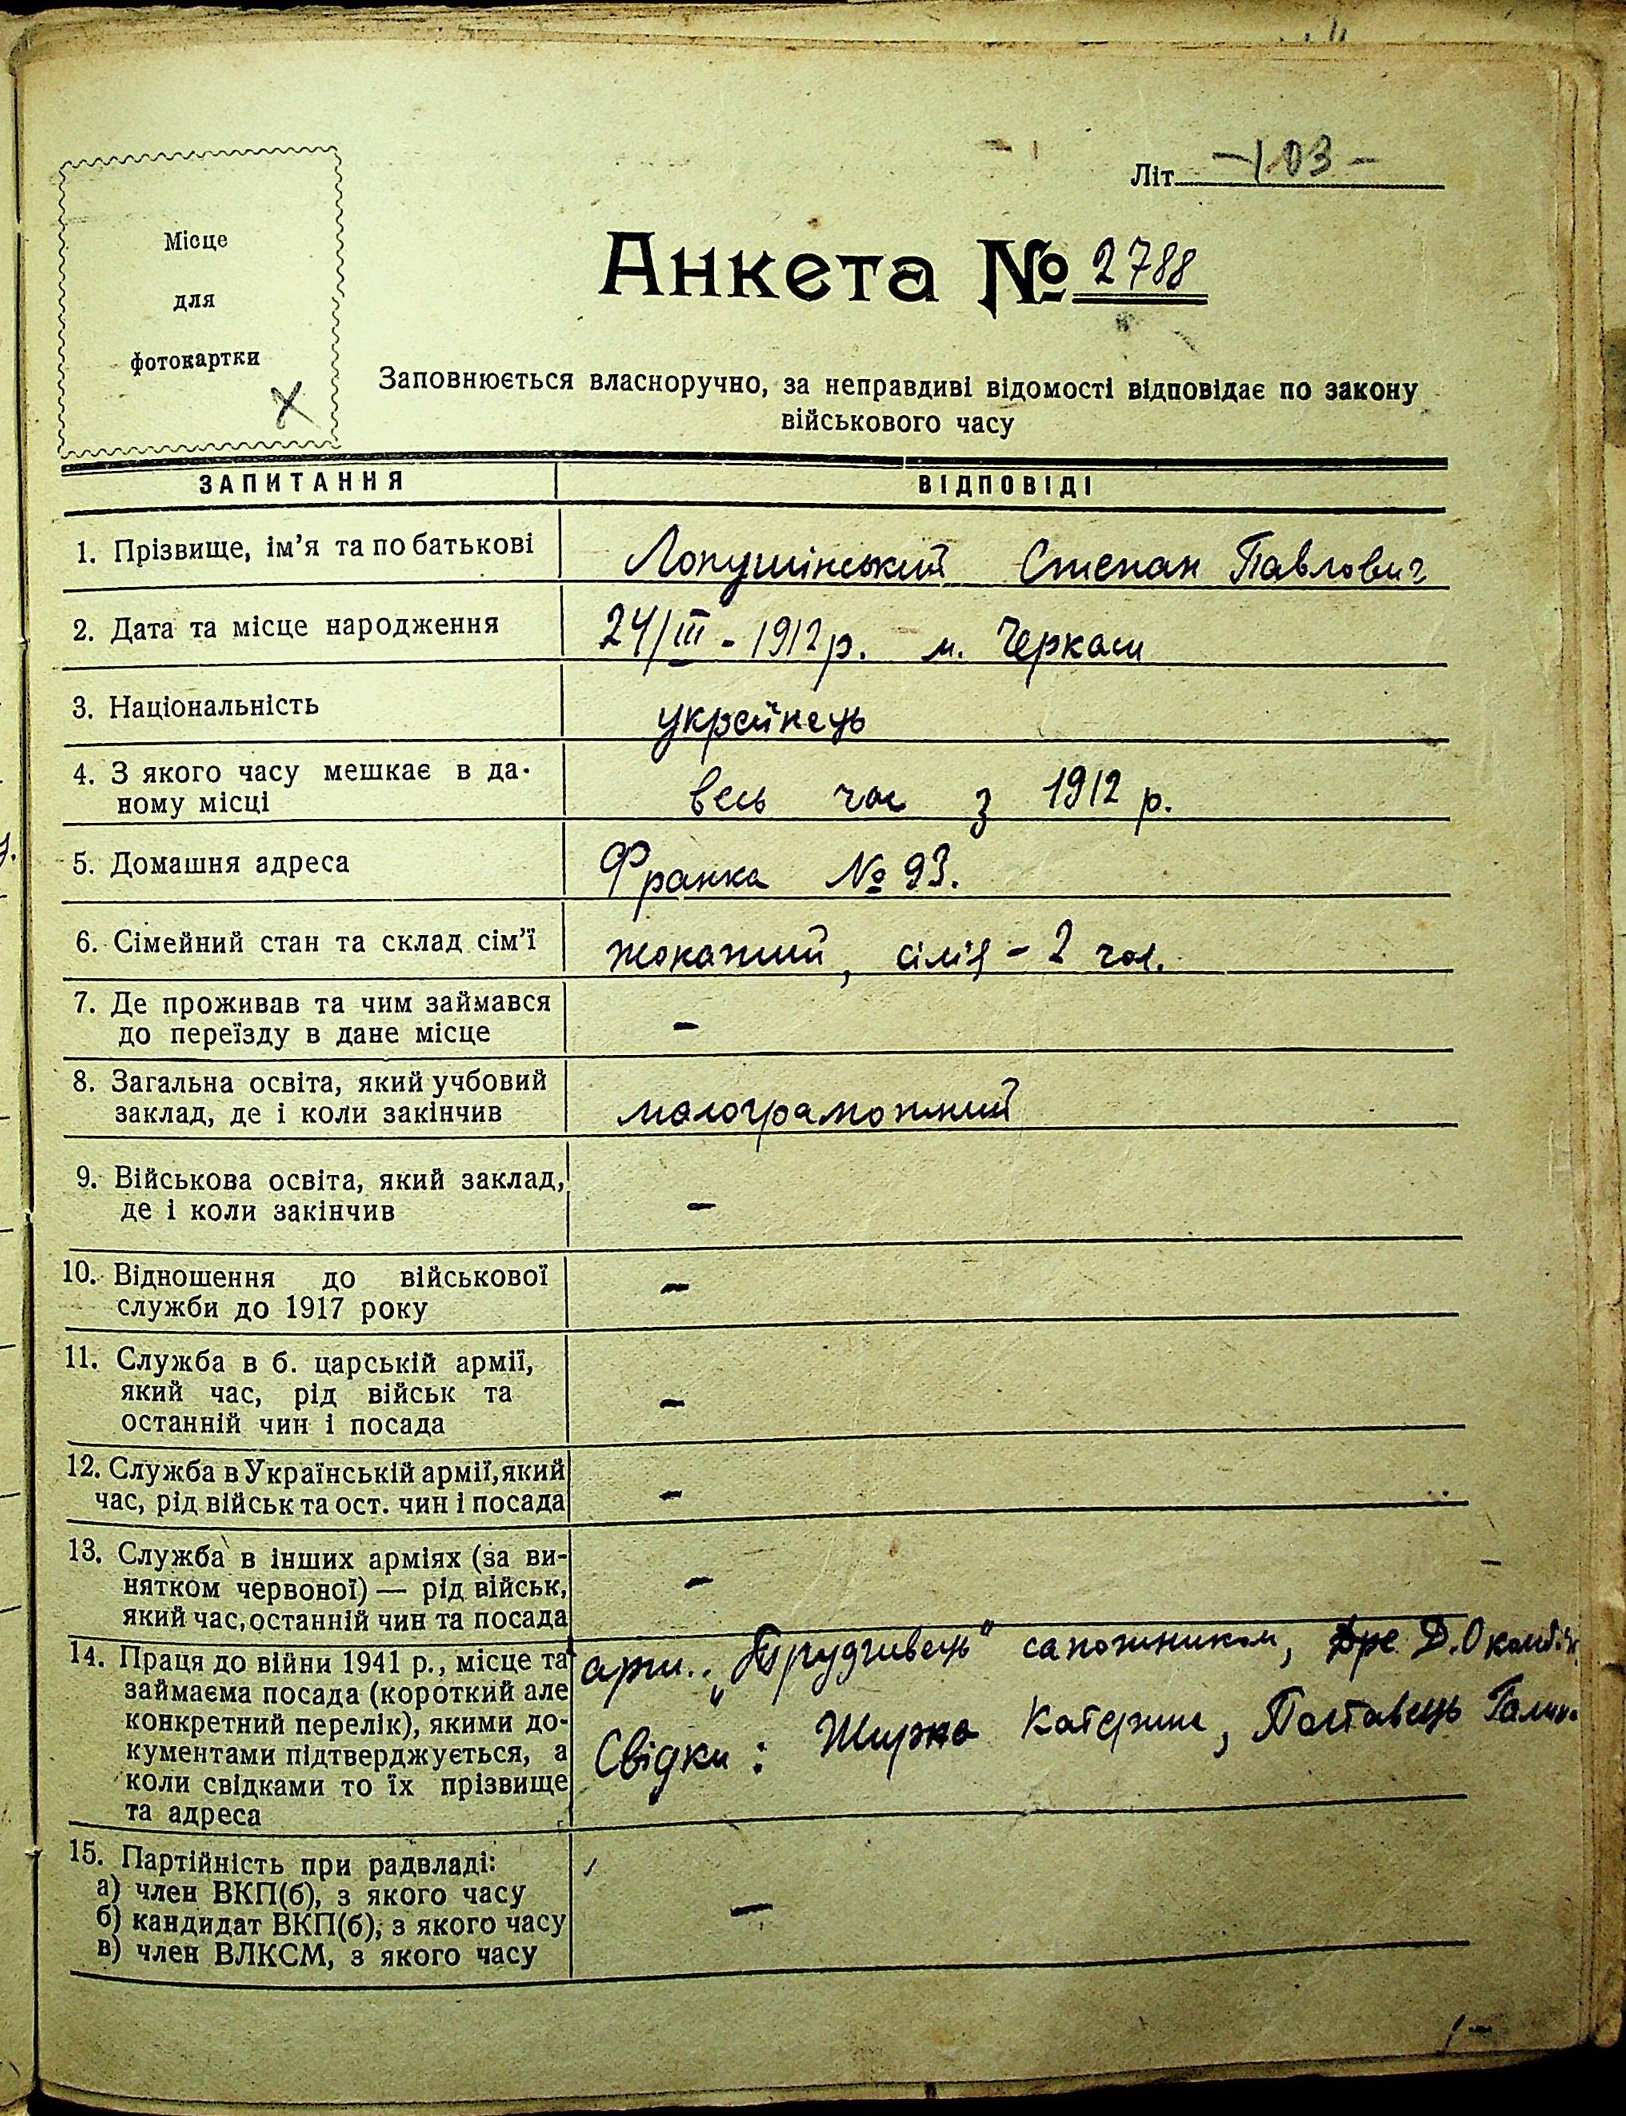 Літ. -103-
Місце
для
фотокартки
Анкета № 2788
Заповнюється власноручно, за неправдиві відомості відповідає по закону
військового часу
ЗАПИТАННЯ ВІДПОВІДІ
1. Прізвище, ім’я та по батькові Лопушінський Степан Павлович
2. Дата та місце народження 24/III - 1912 р. м. Черкаси
3. Національність українець
4. З якого часу мешкає в да-
ному місці весь час з 1912 р.
5. Домашня адреса Франка № 93.
6. Сімейний стан та склад сім’ї жонатий, сім'я - 2 чол.
7. Де проживав та чим займався
до переїзду в дане місце -
8. Загальна освіта, який учбовий
заклад, де і коли закінчив малограмотний
9. Військова освіта, який заклад,
де і коли закінчив -
10. Відношення до військової
служби до 1917 року -
11. Служба в б. царській армії,
який час, рід військ та
останній чин і посада -
12. Служба в Українській армії, який
час, рід військ та ост. чин і посада -
13. Служба в інших арміях (за ви-
нятком червоної) — рід військ,
який час, останній чин та посада -
14. Праця до війни 1941 р., місце та
займаєма посада (короткий але
конкретний перелік), якими до-
кументами підтверджується, а
коли свідками то їх прізвище
та адреса
арт. сапожником, Д.
Свідки: Катерина, Полтавець
15. Партійність при радвладі:
а) член ВКП(б), з якого часу
б) кандидат ВКП(б), з якого часу
в) член ВЛКСМ, з якого часу -